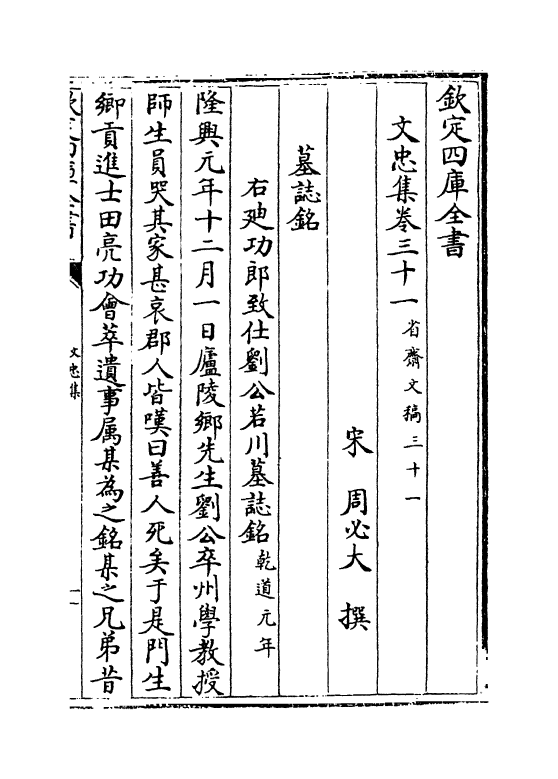 欽定四庫全書
文忠集卷三十一 省齋文稿三十一
宋 周必大 撰
墓誌銘
右廸功郎致仕劉公若川墓誌銘 乾道元年
隆興元年十二月一日廬陵鄉先生劉公卒州學教授
師生員哭其家甚哀郡人皆嘆曰善人死矣于是門生
鄉貢進士田亮功會萃遺事属某為之銘某之兄弟昔
欽定四庫全書
文忠集
一